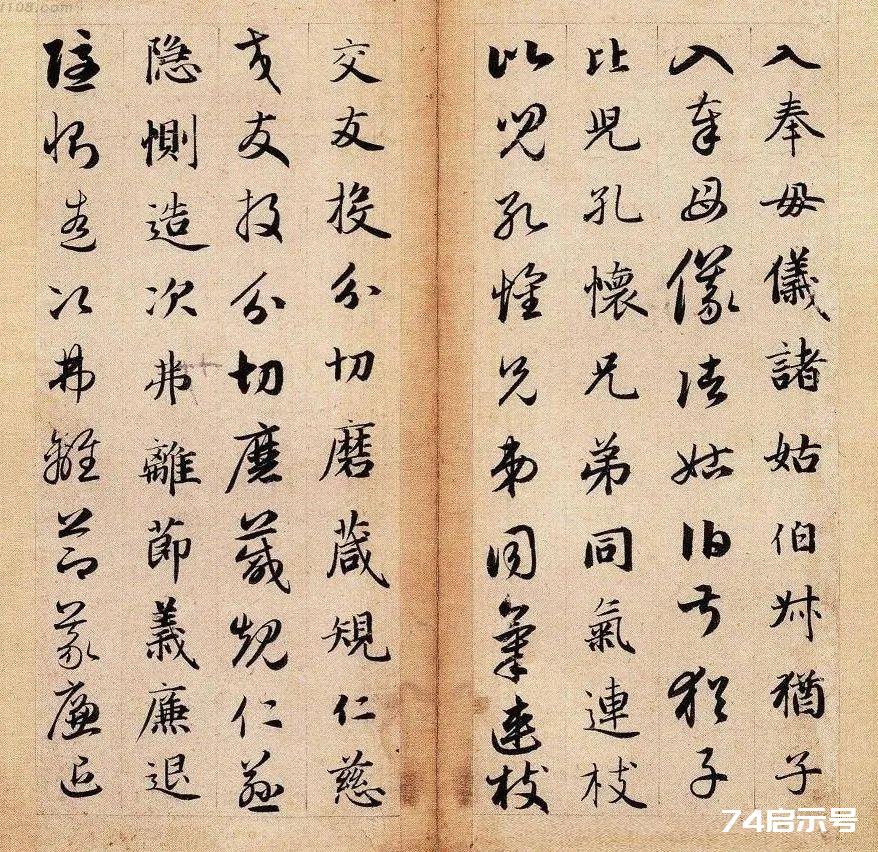 入奉母儀諸姑伯叔猶子
入奉母儀諸姑伯叔猶子
比兒孔懷兄弟同氣連枝
比兒孔懷兄弟同氣連枝
交友投分切磨箴規仁慈
交友投分切磨箴規仁慈
隱惻造次弗離節義廉退
隱惻造次弗離節義廉退
74启示号